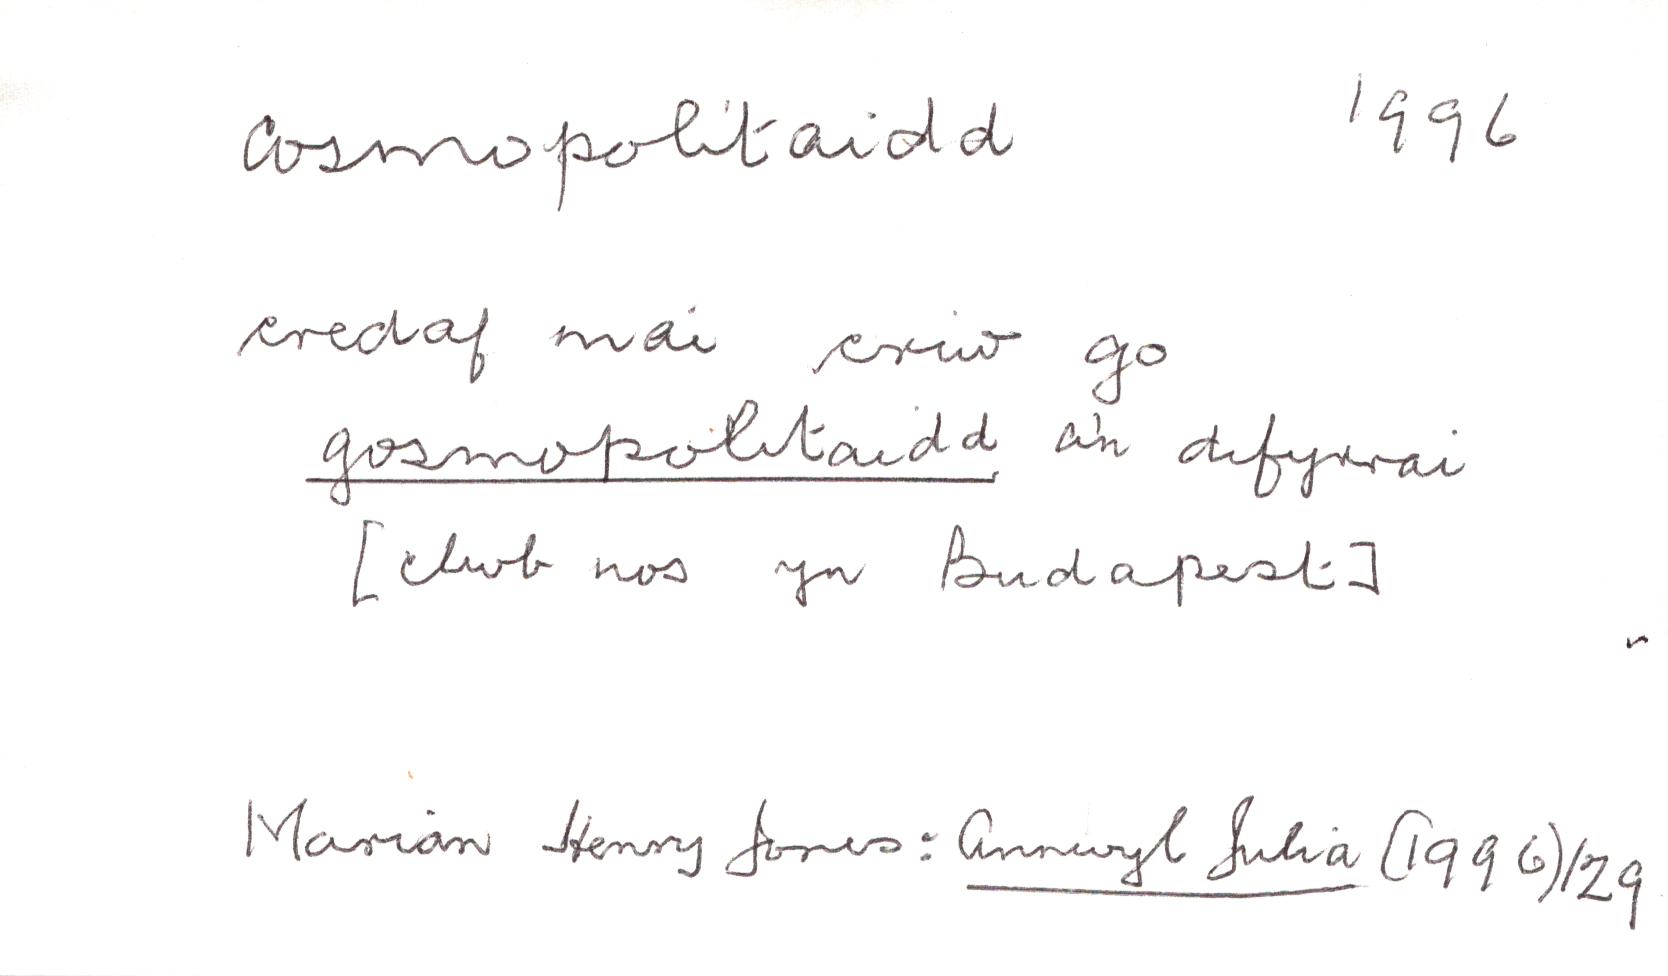 cosmopolitaidd 1996
credaf mai criw go
gosmopolitaidd a'n difyrrai
[clwb nos yn Budapest]
Marian Henry Jones: Annwyl Julia (1996)/29